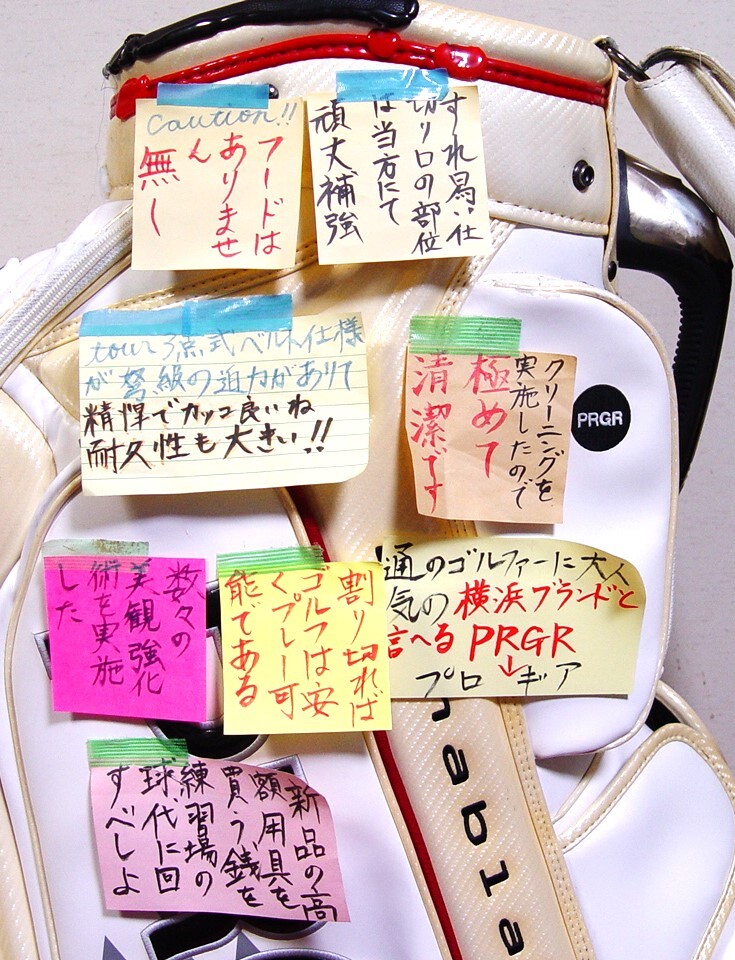 caution!!
フードは
ありませ
ん
無し
すれ易い仕
切り口の部位
は当方にて
頑丈補強
tour 3点式ベルト仕様
が弩級の迫力がありて
精悍でカッコ良いね
耐久性も大きい!!
クリーニングを
実施したので
極めて
清潔です
PRGR
数々の
美観強化
術を実施
した
割り切れば
ゴルフは安
くプレー可
能である
通のゴルファーに大人
気の 横浜ブランドと
言へる PRGR
↓
プロギア
新品の高
額用具を
買う銭を
練習場の
球代に回
すべしよ